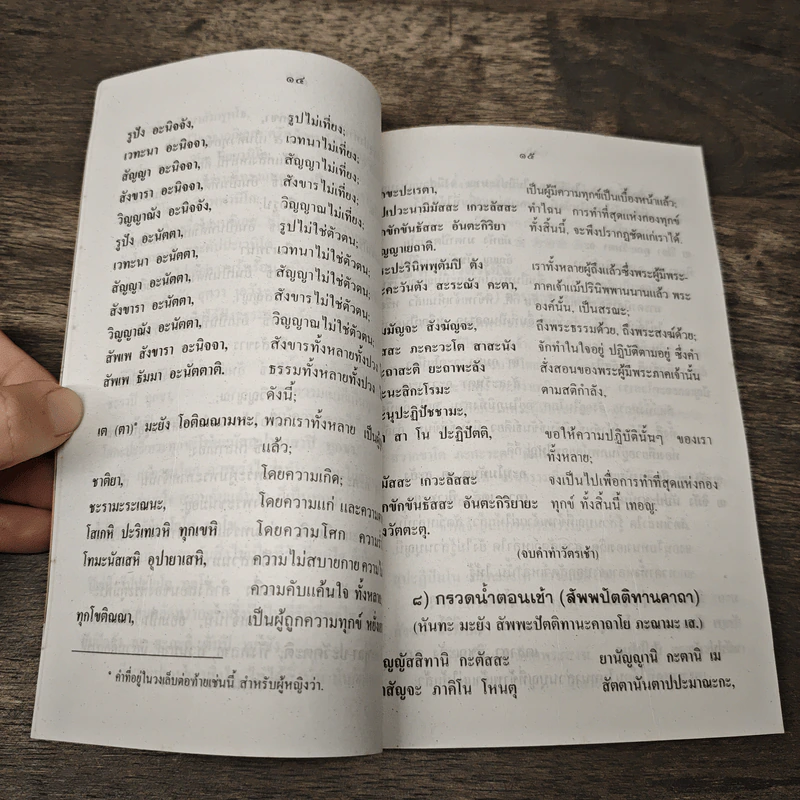 ๑๔
รูปัง อะนิจจัง, รูปไม่เที่ยง;
เวทะนา อะนิจจา, เวทนาไม่เที่ยง;
สัญญา อะนิจจา, สัญญาไม่เที่ยง;
สังขารา อะนิจจา, สังขารไม่เที่ยง;
วิญญาณัง อะนิจจัง, วิญญาณไม่เที่ยง;
รูปัง อะนัตตา, รูปไม่ใช่ตัวตน;
เวทะนา อะนัตตา, เวทนาไม่ใช่ตัวตน;
สัญญา อะนัตตา, สัญญาไม่ใช่ตัวตน;
สังขารา อะนัตตา, สังขารไม่ใช่ตัวตน;
วิญญาณัง อะนัตตา, วิญญาณไม่ใช่ตัวตน;
สัพเพ สังขารา อะนิจจา, สังขารทั้งหลายทั้งปวง
สัพเพ ธัมมา อะนัตตาติ. ธรรมทั้งหลายทั้งปวง
ดังนี้;
เต (ตา)* มะยัง โอติณณามหะ, พวกเราทั้งหลาย
แล้ว;
ชาติยา, โดยความเกิด;
ชะรามะระเณนะ, โดยความแก่ และความ
โสเกหิ ปะริเทเวหิ ทุกเขหิ โดยความโศก
โทมะนัสเสหิ อุปายาเสหิ, ความไม่สบายกาย
ความคับแค้นใจ
ทุกโขติณณา, เป็นผู้ถูกความทุกข์
* คำที่อยู่ในวงเล็บต่อท้ายเช่นนี้ สำหรับผู้หญิงว่า.
๑๕
ขะปะเรตา, เป็นผู้มีความทุกข์เป็นเบื้องหน้าแล้ว;
เกวะลัสสะ ทำไฉน การทำที่สุดแห่งกองทุกข์
อันตะกิริยา ทั้งสิ้นนี้, จะพึงปรากฏชัดแก่เราได้.
ญญาเยถาติ.
ะปะรินิพพุตัมปิ ตัง เราทั้งหลายผู้ถึงแล้วซึ่งพระผู้มีพระ-
คะวันตัง สะระณัง คะตา, ภาคเจ้าแม้ปรินิพพานนานแล้ว พระ
องค์นั้น, เป็นสรณะ;
มมัญจะ สังฆัญจะ, ถึงพระธรรมด้วย, ถึงพระสงฆ์ด้วย;
สสะ ภะคะวะโต สาสะนัง จักทำในใจอยู่ ปฏิบัติตามอยู่ ซึ่งคำ
ถาสะติ ยะถาพะลัง สั่งสอนของพระผู้มีพระภาคเจ้านั้น
ะนะสิกะโรมะ ตามสติกำลัง.
ะนุปะฏิปัชชามะ,
สา โน ปะฏิปัตติ, ขอให้ความปฏิบัตินั้นๆ ของเรา
ทั้งหลาย;
มัสสะ เกวะลัสสะ จงเป็นไปเพื่อการทำที่สุดแห่งกอง
กขักขันธัสสะ อันตะกิริยายะ ทุกข์ ทั้งสิ้นนี้ เทอญ.
งวัตตะตุ.
(จบคำทำวัตรเช้า)
๘) กรวดน้ำตอนเช้า (สัพพปัตติทานคาถา)
(หันทะ มะยัง สัพพะปัตติทานะคาถาโย ภะณามะ เส.)
ญญัสสิทานิ กะตัสสะ ยานัญญานิ กะตานิ เม
สัญจะ ภาคิโน โหนตุ สัตตานันตาปปะมาณะกะ,